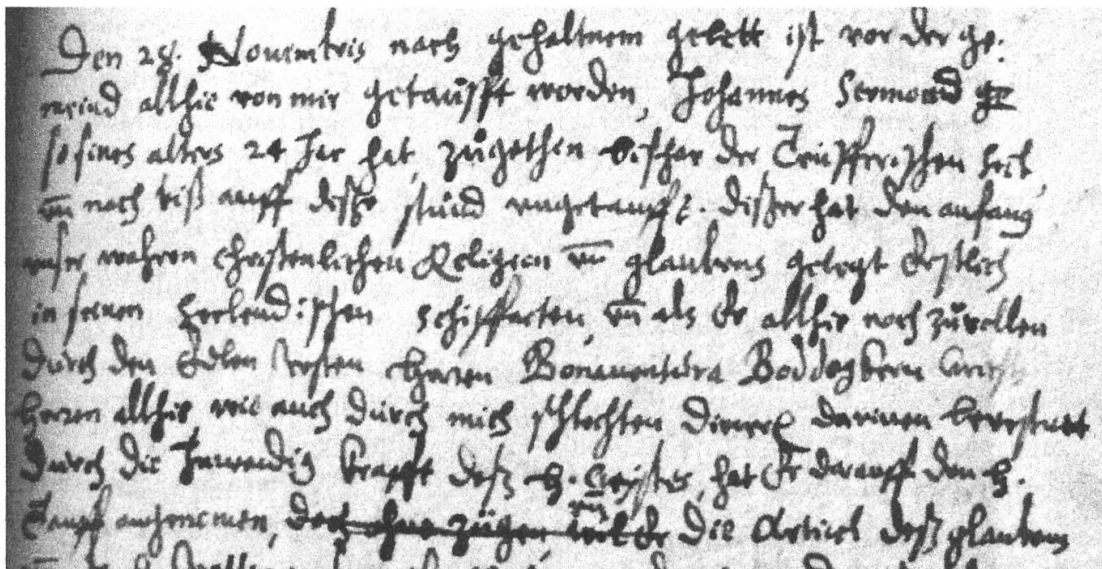 Den 28. Novembris nach gehaltnem gebett ist vor der ge-
meind allhie von mir getaufft worden, Johannes Sermond
so seines alters 24 Jar hat, zugethon bißhar der Teüfferischen sect,
vn̄ noch biß auff diße stund vngetaufft. dißer hat den anfang
vnser wahren christenlichen Religion vn̄ glaubens gelegt Erstlich
in seinen Seelendischen schiffarten, vn̄ als Er allhie noch zu
durch den Edlen vesten Herren Bonauentura Boddeghem
herren allhie wie auch durch mich schlechten diener darinnen
durch die Inwendig krafft deß h. Geistes, hat Er darauff den h.
Tauff angenomen, doch ohne zügen, die Articul deß glaubens